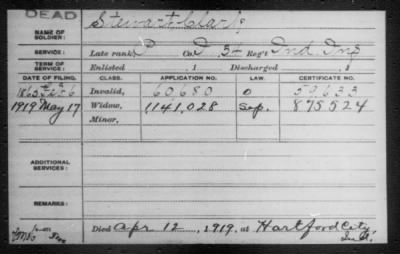 DEAD
NAME OF SOLDIER: Stewart Clark
SERVICE: Late rank P Co. Reg't Ind. Inf
TERM OF SERVICE: Enlisted , 1 Discharged , 1
DATE OF FILING. CLASS. APPLICATION NO. LAW. CERTIFICATE NO.
1863 6 Invalid, 60680 O 59633
1919 May 17 Widow, 1141,028 Sep. 875524
Minor,
ADDITIONAL SERVICES:
REMARKS:
Died Apr 12, 1919, at Hartford City
Ind.